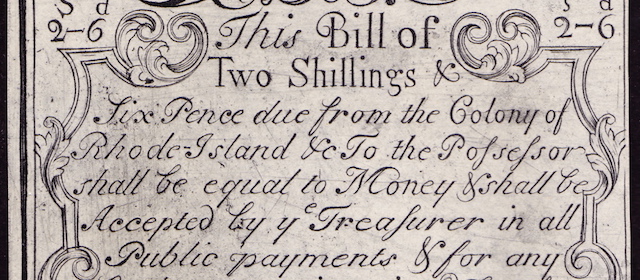 S d S d
2-6 This Bill of 2-6
Two Shillings &
Six Pence due from the Colony of
Rhode-Island &c To the Poſseſsor
shall be equal to Money & shall be
Accepted by yͤ Treaſurer in all
Public payments & for any